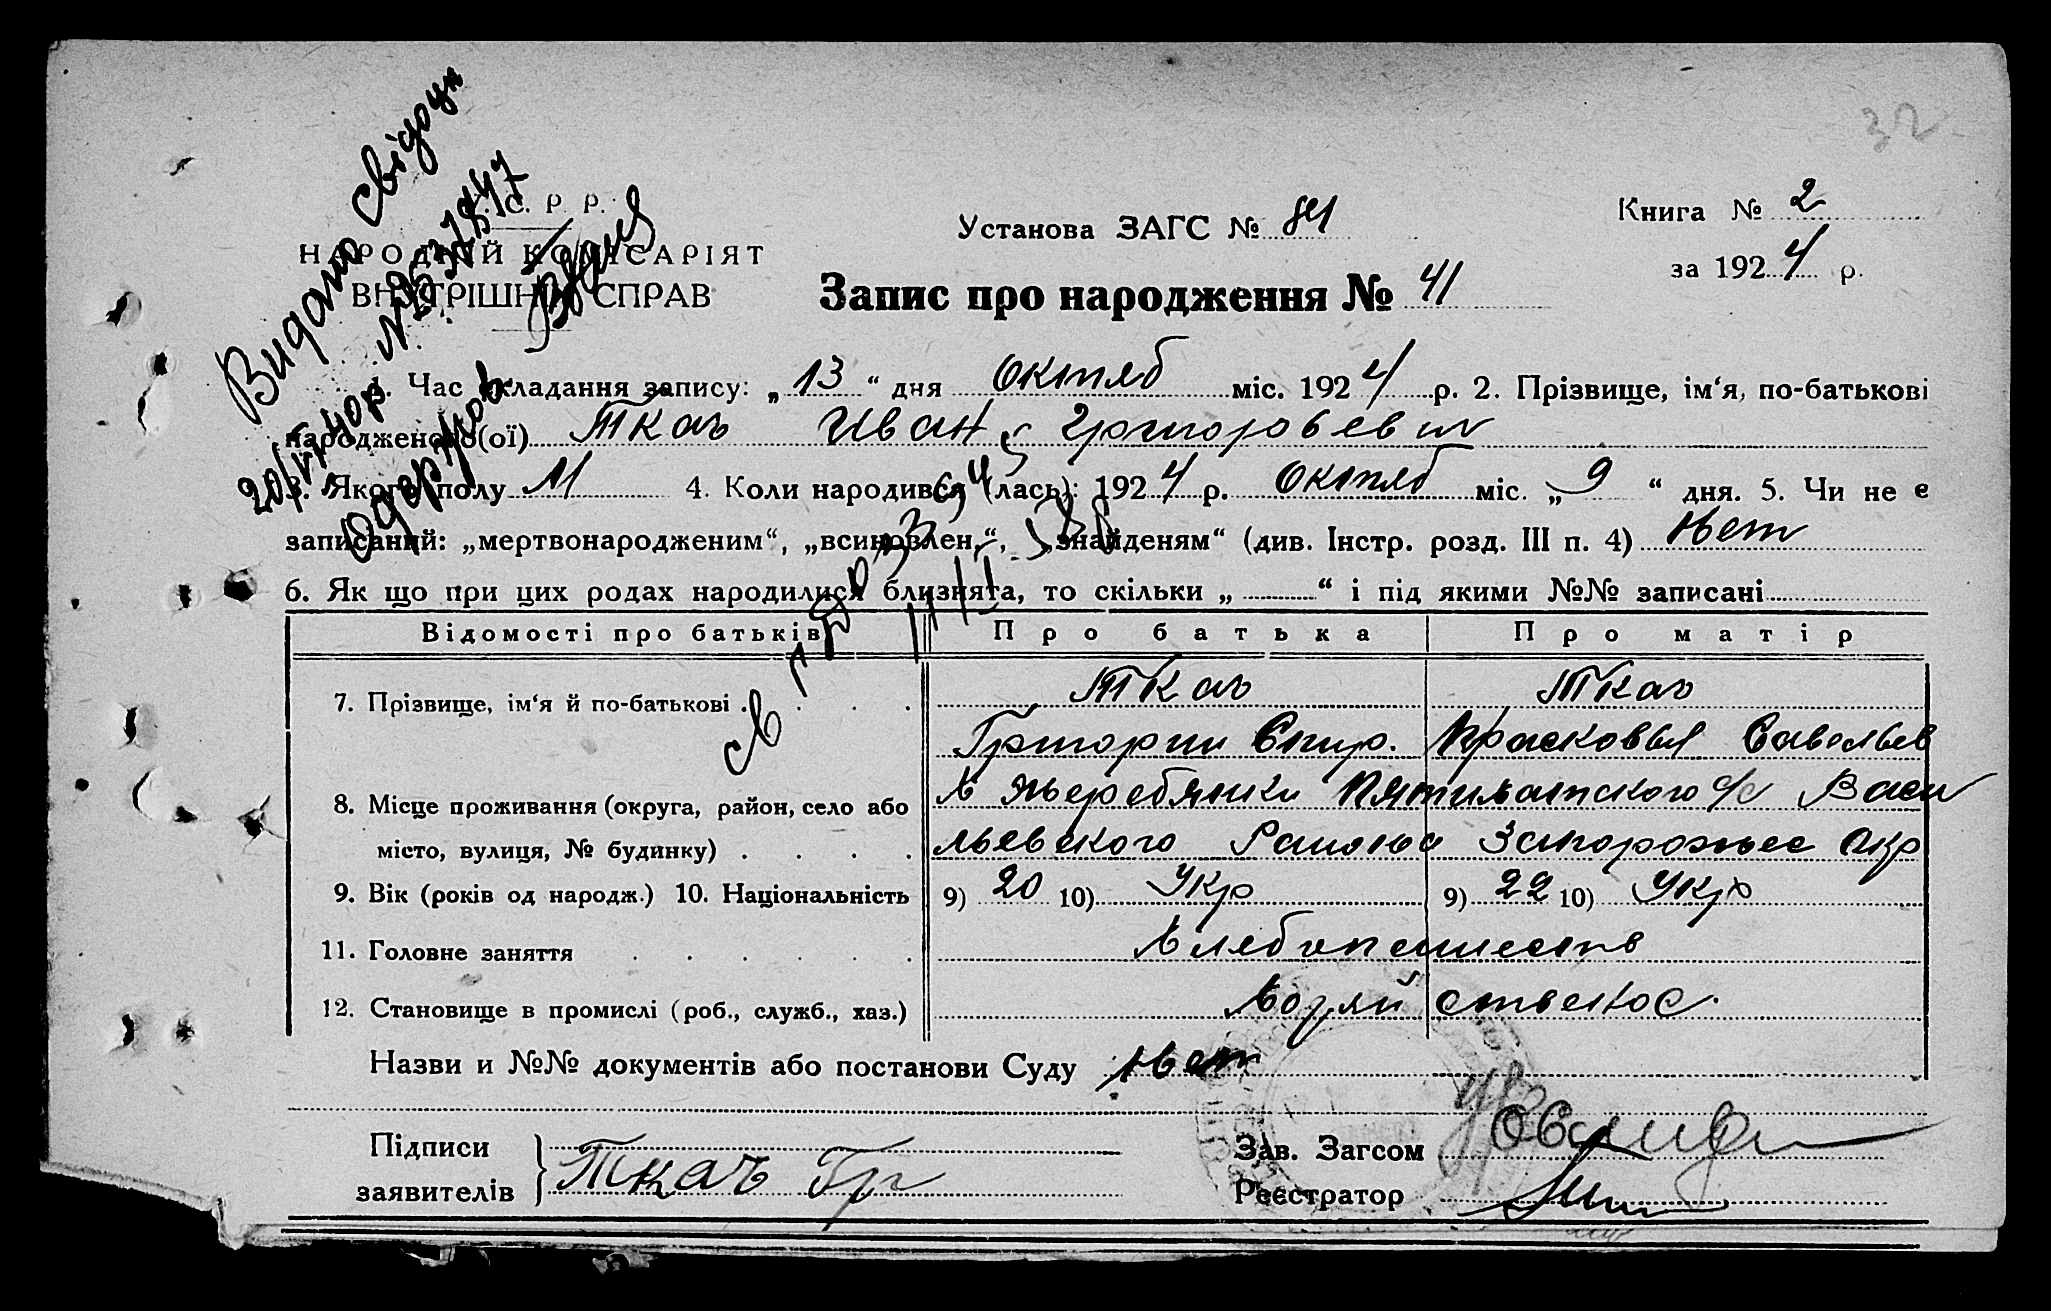 32
У. С. Р. Р.
НАРОДНІЙ КОМІСАРІЯТ
ВНУТРІШНІХ СПРАВ
Установа ЗАГС № 84
Книга № 2
за 1924 р.
Запис про народження № 41
Видано свідоцт
20/VI 40р № 637847
Одержов
1. Час складання запису: „13“ дня Октяб міс. 1924 р. 2. Прізвище, ім‘я, по-батькові
народженого(ої) Ткач Иван Григорьевич
3. Якого полу М 4. Коли народився (лась): 1924 р. Октяб міс. „9“ дня. 5. Чи не є
записаний: „мертвонародженим“, „всиновлен.“, „знайденям“ (див. Інстр. розд. III п. 4) Нет
6. Як що при цих родах народилися близнята, то скільки „ “ і під якими №№ записані
Відомості про батьків Про батька Про матір
7. Прізвище, ім‘я й по-батькові Ткач Ткач
Григорий Спир. Прасковья Савельев
8. Місце проживання (округа, район, село або х Жеребянки Пятихатского с/с Васи
місто, вулиця, № будинку) льевского Района Запорожес Окр
9. Вік (років од народж.) 10. Національність 9) 20 10) Укр 9) 22 10) Укр
11. Головне заняття Хлебопашеств
12. Становище в промислі (роб., служб., хаз.) Хозяйственос.
Назви и №№ документів або постанови Суду Нет
Підписи
заявителів Ткач Гр
Зав. Загсом
Реєстратор